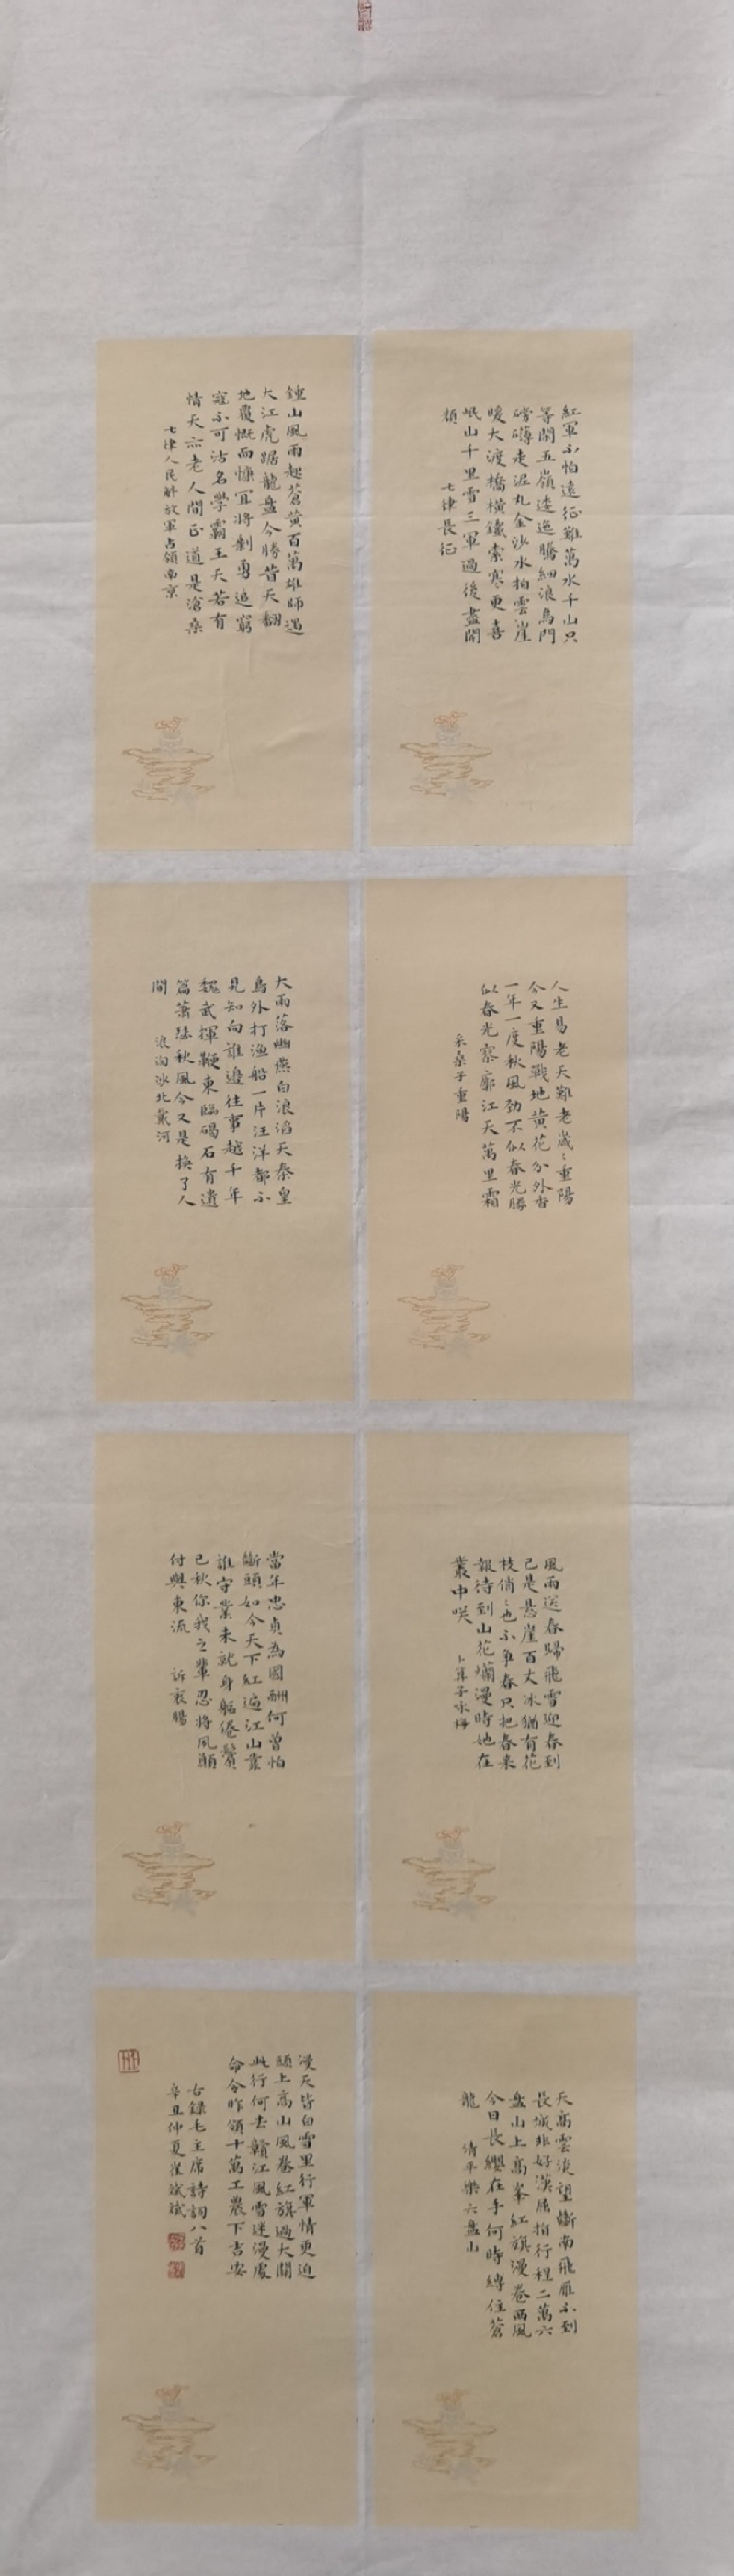 紅軍不怕遠征難萬水千山只
等閒五嶺逶迤騰細浪烏門
磅礴走泥丸金沙水拍雲崖
暖大渡橋橫鐵索寒更喜
岷山千里雪三軍過後盡開
顏
七律長征
鍾山風雨起蒼黃百萬雄師過
大江虎踞龍盤今勝昔天翻
地覆慨而慷宜將剩勇追窮
寇不可沽名學霸王天若有
情天亦老人間正道是滄桑
七律人民解放軍占領南京
人生易老天難老歲〻重陽
今又重陽戰地黃花分外香
一年一度秋風勁不似春光勝
似春光寥廓江天萬里霜
采桑子重陽
大雨落幽燕白浪滔天秦皇
島外打漁船一片汪洋都不
見知向誰邊往事越千年
魏武揮鞭東臨碣石有遺
篇蕭瑟秋風今又是換了人
間
浪淘沙北戴河
風雨送春歸飛雪迎春到
已是悬崖百丈冰猶有花
枝俏〻也不爭春只把春來
報待到山花爛漫時她在
叢中咲
卜算子咏梅
當年忠貞為國酬何曾怕
斷頭如今天下紅遍江山靠
誰守業未就身軀倦鬢
已秋你我之輩忍將夙願
付與東流
訴衷腸
天高雲淡望斷南飛雁不到
長城非好漢屈指行程二萬六
盘山上高峯紅旗漫卷西風
今日長纓在手何時縛住蒼
龍
清平樂六盘山
漫天皆白雪里行軍情更迫
頭上高山風卷紅旗過大關
此行何去贛江風雪迷漫處
命令昨頒十萬工農下吉安
右錄毛主席詩詞八首
辛丑仲夏崔斌斌